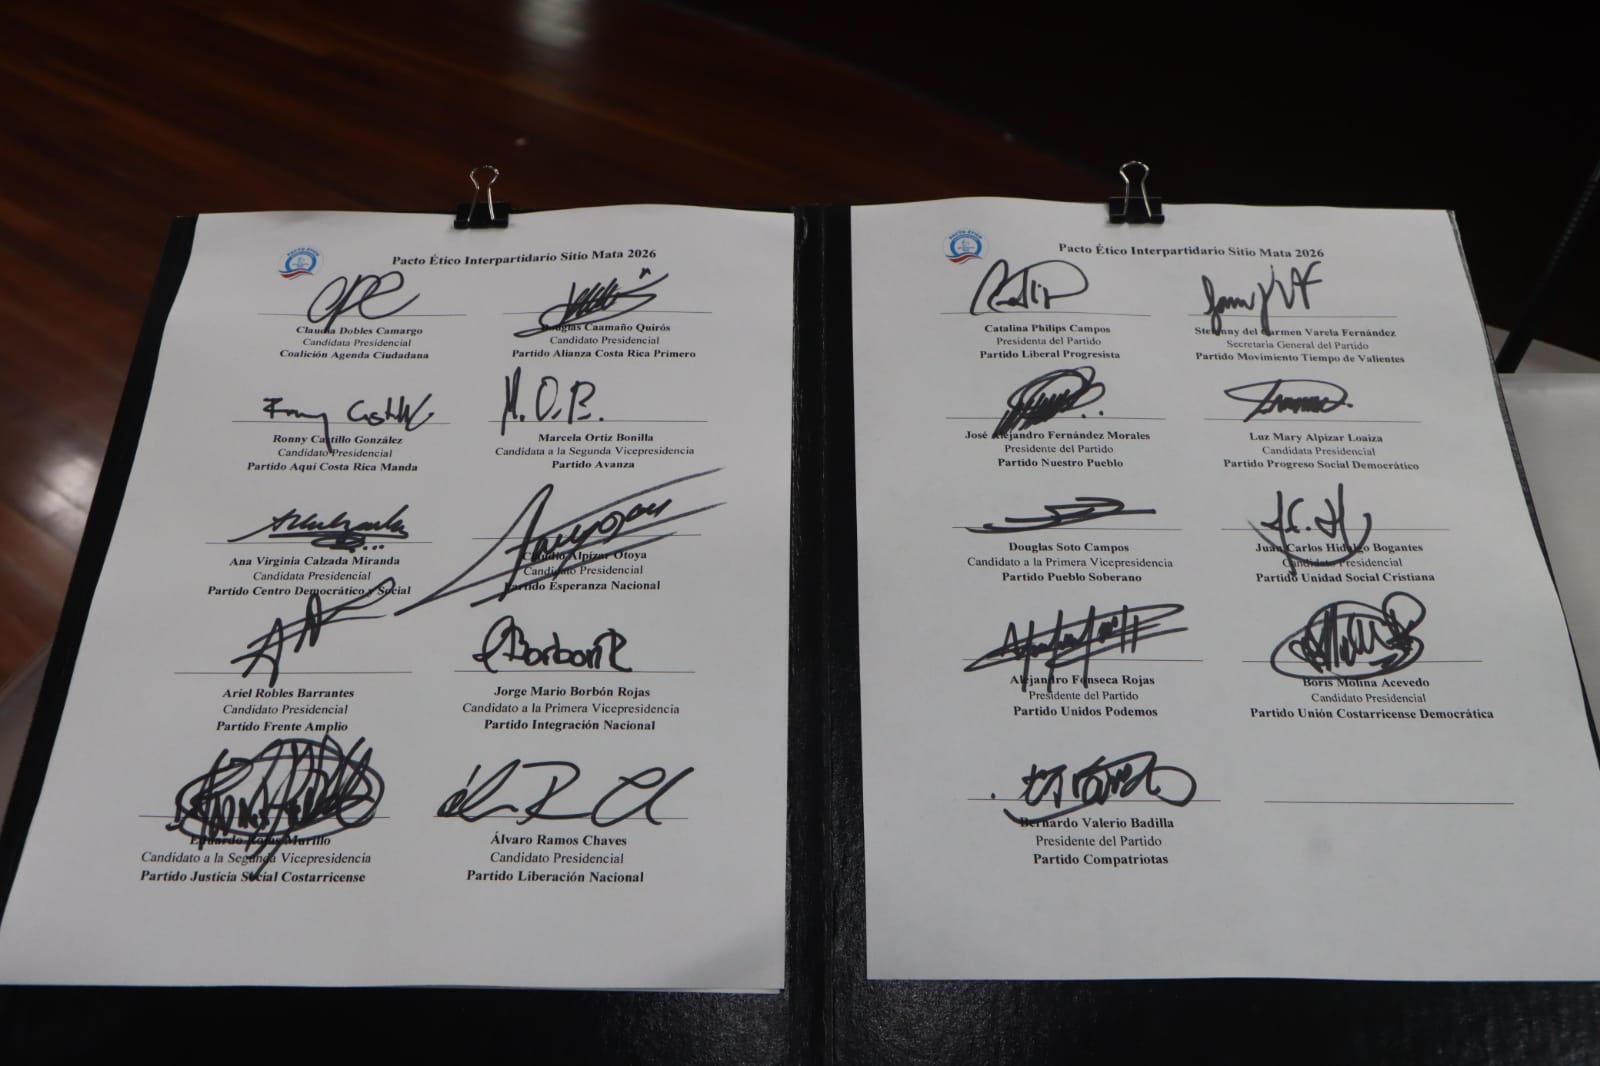 Pacto Ético Interpartidario Sitio Mata 2026
Claudia Dobles Camargo
Candidata Presidencial
Coalición Agenda Ciudadana
Douglas Caamaño Quirós
Candidato Presidencial
Partido Alianza Costa Rica Primero
Ronny Castillo González
Candidato Presidencial
Partido Aquí Costa Rica Manda
M.O.B.
Marcela Ortiz Bonilla
Candidata a la Segunda Vicepresidencia
Partido Avanza
Ana Virginia Calzada Miranda
Candidata Presidencial
Partido Centro Democrático y Social
Claudio Alpízar Otoya
Candidato Presidencial
Partido Esperanza Nacional
Ariel Robles Barrantes
Candidato Presidencial
Partido Frente Amplio
Jorge Mario Borbón Rojas
Candidato a la Primera Vicepresidencia
Partido Integración Nacional
Eduardo Rojas Murillo
Candidato a la Segunda Vicepresidencia
Partido Justicia Social Costarricense
Álvaro Ramos Chaves
Candidato Presidencial
Partido Liberación Nacional
PACTO ÉTICO
Pacto Ético Interpartidario Sitio Mata 2026
Catalina Philips Campos
Presidenta del Partido
Partido Liberal Progresista
Stefanny del Carmen Varela Fernández
Secretaria General del Partido
Partido Movimiento Tiempo de Valientes
José Alejandro Fernández Morales
Presidente del Partido
Partido Nuestro Pueblo
Luz Mary Alpízar Loaiza
Candidata Presidencial
Partido Progreso Social Democrático
Douglas Soto Campos
Candidato a la Primera Vicepresidencia
Partido Pueblo Soberano
Juan Carlos Hidalgo Bogantes
Candidato Presidencial
Partido Unidad Social Cristiana
Alejandro Fonseca Rojas
Presidente del Partido
Partido Unidos Podemos
Boris Molina Acevedo
Candidato Presidencial
Partido Unión Costarricense Democrática
Bernardo Valerio Badilla
Presidente del Partido
Partido Compatriotas